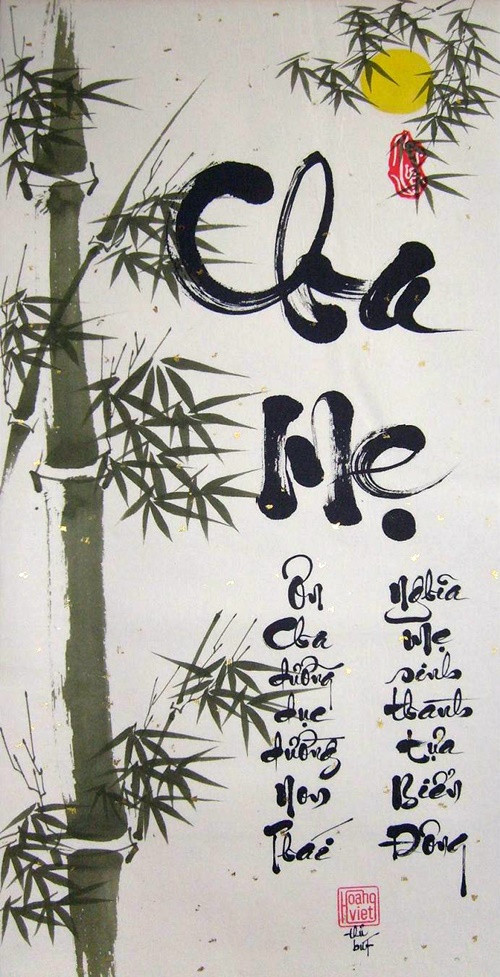 Cha
Mẹ
Ơn Cha dưỡng dục dường Non Thái
Nghĩa Mẹ sinh thành tựa Biển Đông
Hoang
viet
thủ
bút